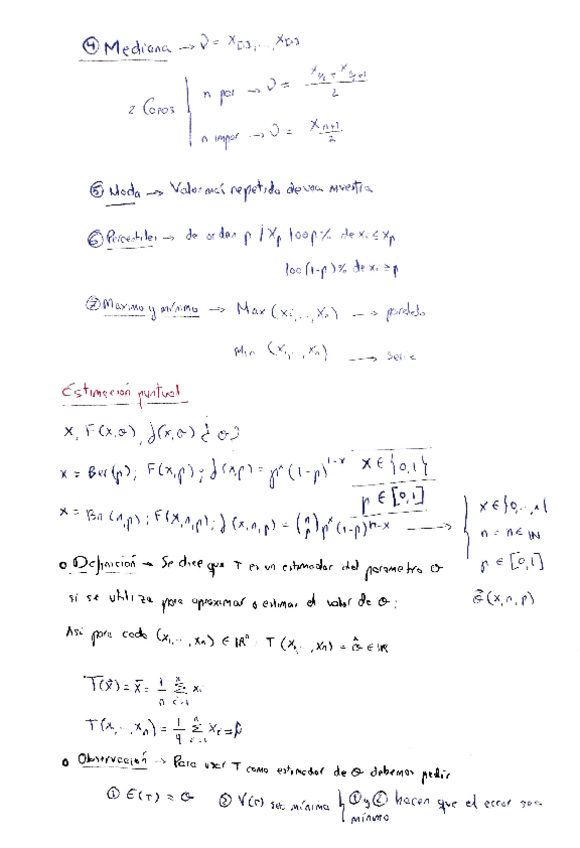 ④ Mediana → ν = x[1],...,x[n]
2 Casos { n par → ν = (x n/2 + x n/2+1) / 2
n impar → ν = x (n+1)/2
⑤ Moda → Valor más repetido de una muestra
⑥ Percentiles → de orden p / xp 100p% de xi ≤ xp
100(1-p)% de xi ≥ p
⑦ Maximo y mínimo → Max (xi,..,xn) → paralelo
Min (xi,..,xn) → serie
Estimación puntual
x, F(x,θ), f(x,θ) ¿θ?
x = Ber(p); F(x,p); f(x,p) = p^x (1-p)^{1-x} x ∈ {0,1}
p ∈ [0,1]
x = Bn(n,p); F(x,n,p); f(x,n,p) = (n p) p^x (1-p)^{n-x} → { x ∈ {0,..,n}
n = n ∈ ℕ
p ∈ [0,1]
o Definición → Se dice que T es un estimador del parametro θ
si se utiliza para aproximar o estimar el valor de θ:
θ̂(x,n,p)
Así para cada (x1,..,xn) ∈ ℝ^n : T(x1,..,xn) = θ̂ ∈ ℝ
T(x̄) = x̄ = 1/n Σ_{i=1}^{n} xi
T(x1,..,xn) = 1/9 Σ_{i=1}^{n} xi = p̂
o Observación → Para usar T como estimador de θ debemos pedir
① E(T) = θ ② V(T) sea mínima } ① y ② hacen que el error sea
mínimo